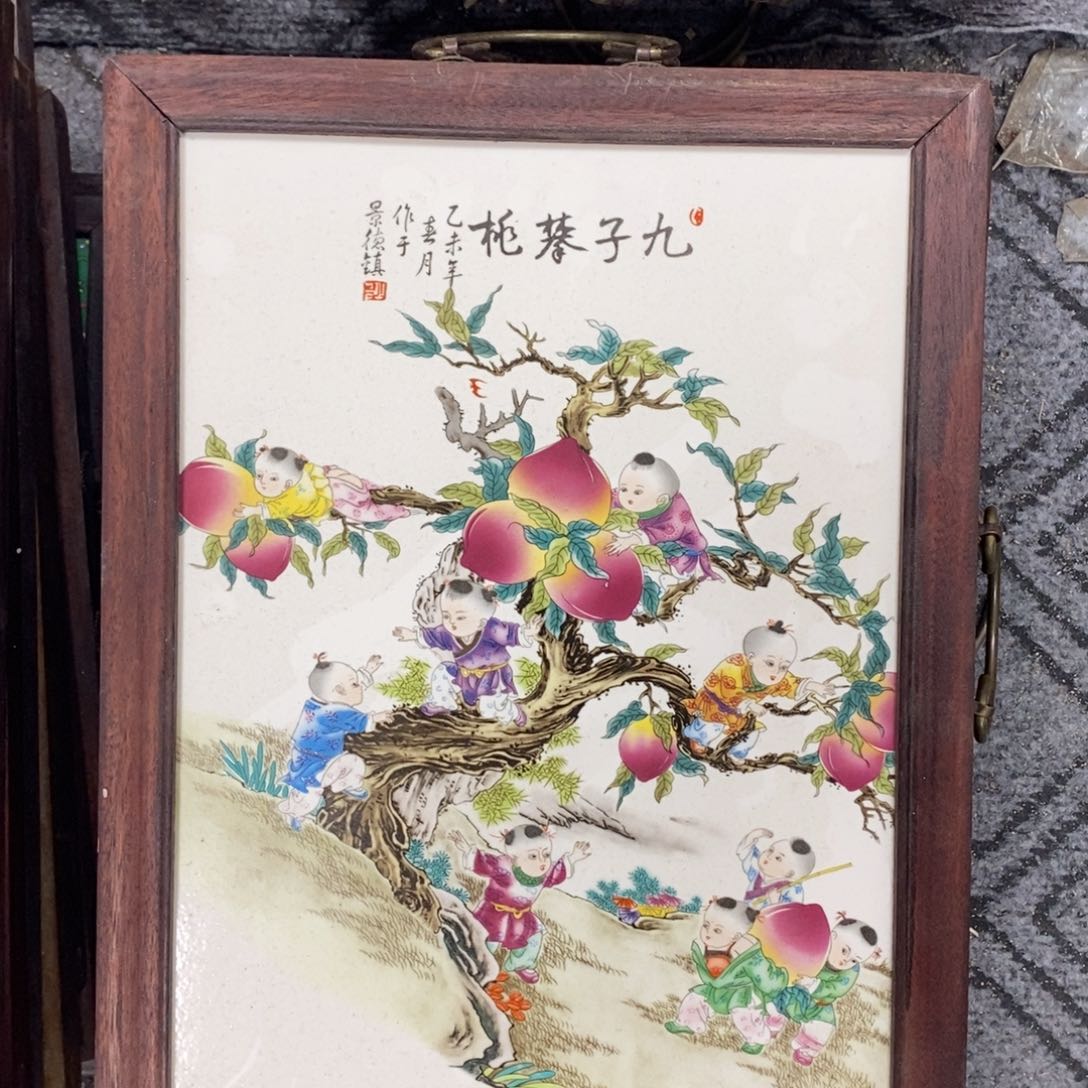 九子攀桃
乙未年
春月
作于
景德鎮